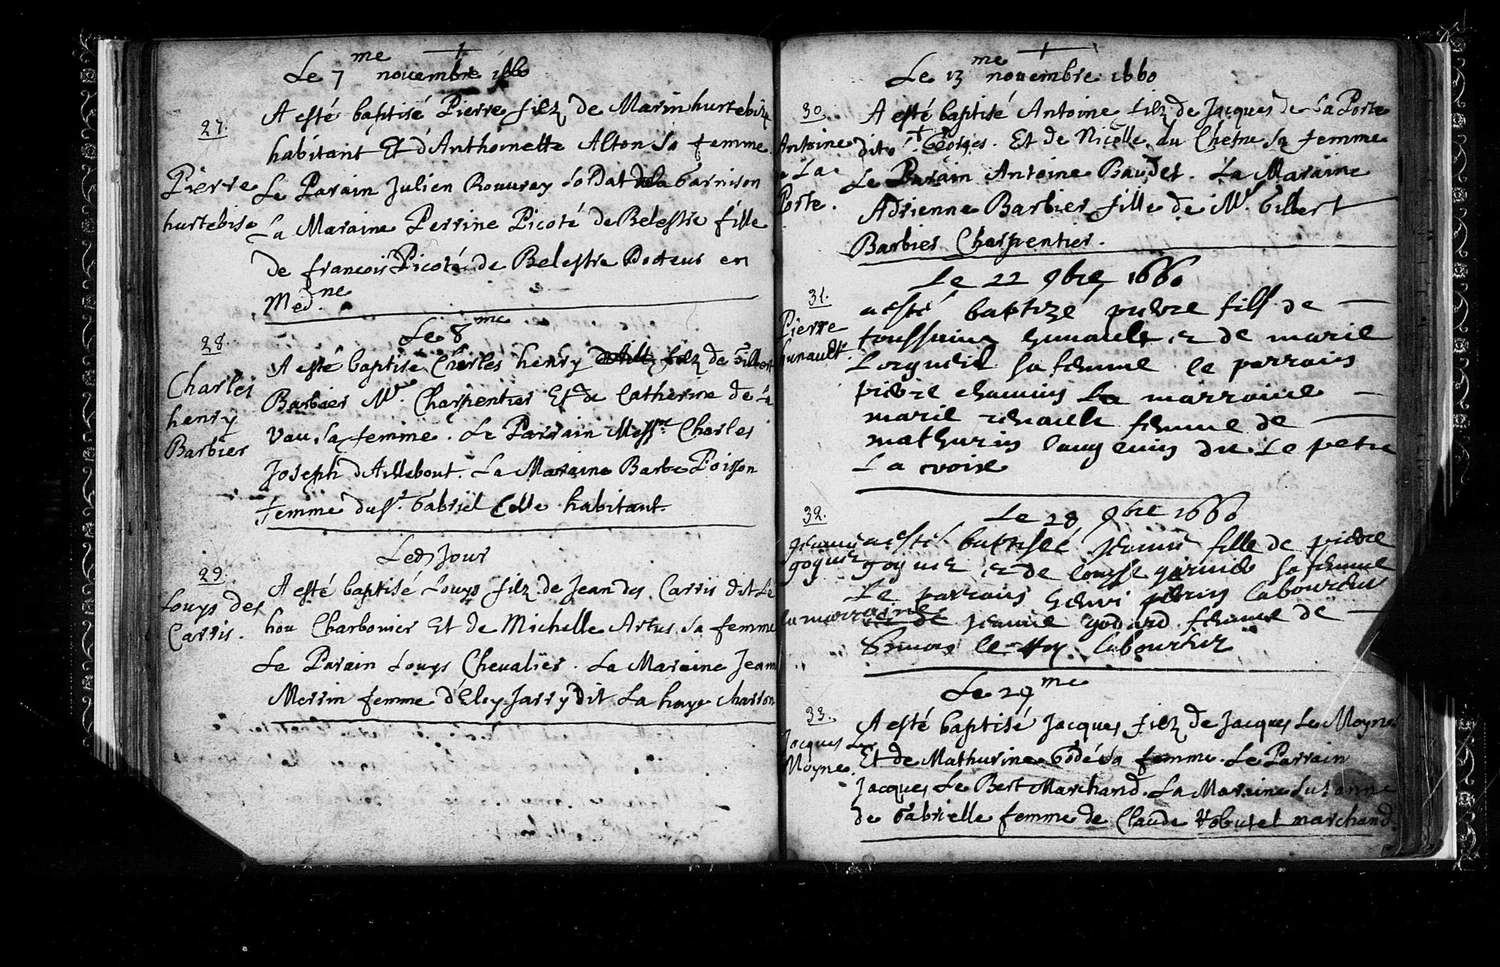 Le 7me novembre 1660
27.
Pierre
hurtebise
A esté baptisé Pierre filz de Marin hurtebize
habitant Et d'Anthoinette Alton sa femme.
Le Parain Julien Rouuray soldat dela Garnison
La Maraine Perrine Picoté de Belestre fille
de francois Picoté de Belestre Docteur en
Medne
Le 8me
28.
Charles
henry
Barbier
A esté baptisé Charles henry filz de Gilbert
Barbier Mre Charpentier Et de Catherine de la
Vau sa femme. Le Parrain Messre Charles
Joseph d'Aillebout. La Maraine Barbe Poisson
femme du sr. Gabriel Celle habitant
Led. Jour
29.
Louys des
Carris.
A esté baptisé Louys filz de Jean des Carris dit Le
hou Charbonier Et de Michelle Artus sa femme
Le Parain Louys Chevalier. La Maraine Jeane
Merrin femme d'Eloy Jarry dit La haye charron
Le 13me novembre 1660
30.
Antoine
e La
Porte.
A esté baptisé Antoine filz de Jacques de La Porte
dit st Georges. Et de Nicolle du Chesne sa femme
Le Parain Antoine Baudet. La Maraine
Adrienne Barbier fille de Mre Gilbert
Barbier Charpentier.
Le 22 9bre 1660
31.
Pierre
hunault.
a esté baptizé pierre fils de
toussainz hunault & de marie
Lorgueil sa femme le parrain
pierre chauuin La marraine
marie renault femme de
mathurin Langeuin du Le petit
La croix
Le 28 9bre 1660
32.
jeanne
goguet
a esté baptisée jeanne fille de pierre
goguet & de louise garnide sa femme
Le parrain henri perin laboureur
la marraine jeanne godard femme de
Simon le Roy laboureur
Le 29me
33.
Jacques Le
Moyne.
A esté baptisé Jacques filz de Jacques Le Moyne
Et de Mathurine Godé sa femme. Le Parrain
Jacques Le Bert Marchand. La Maraine Susanne
de Gabrielle femme de Claude Robutel marchand.